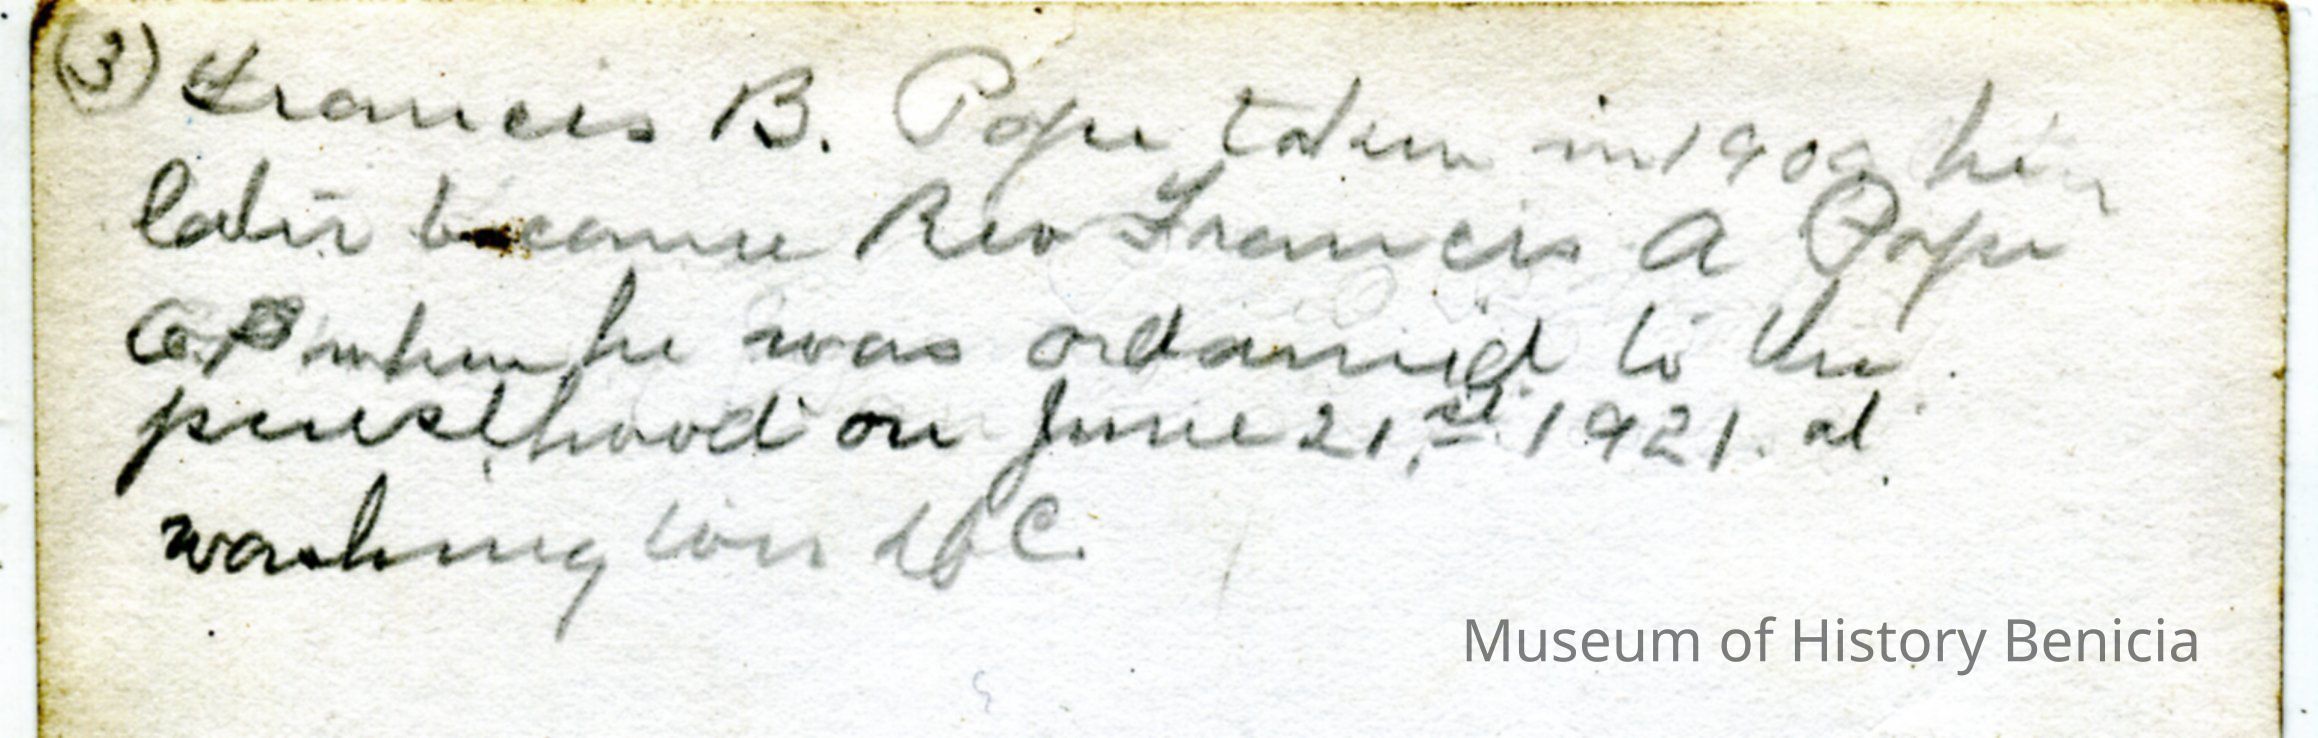 (3) Francis B. Pope taken in 190
later became Rev Francis A Pope
when he was ordained to the
priesthood on June 21,st 1921. at
washington D C.
Museum of History Benicia